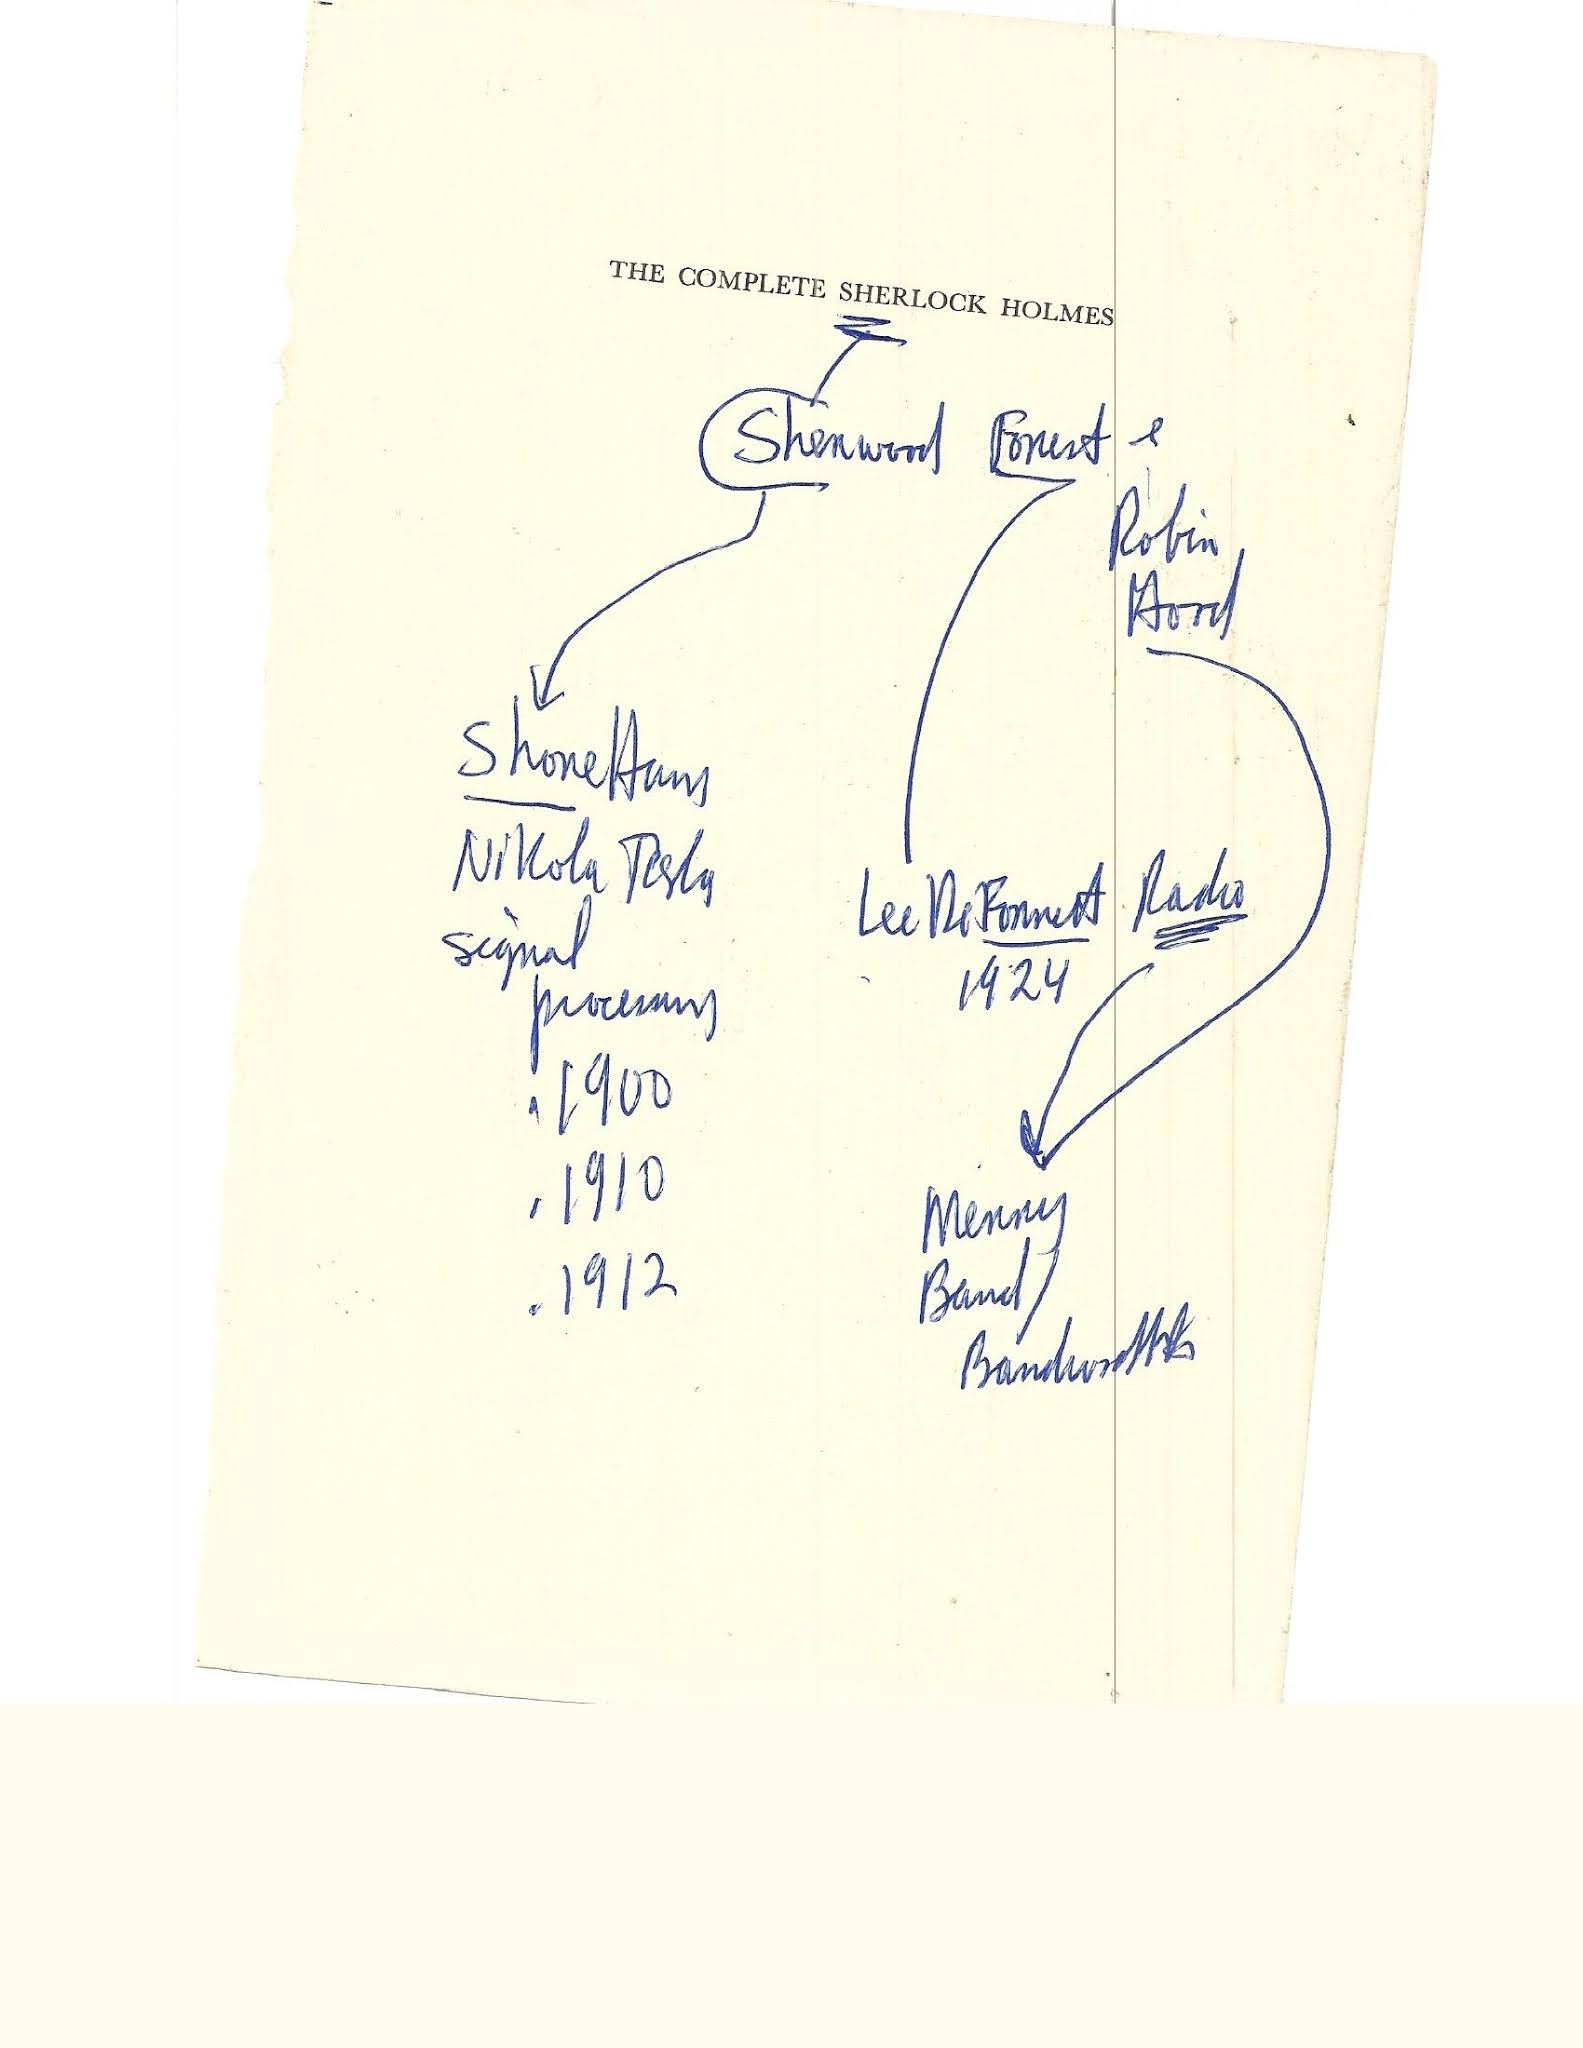 THE COMPLETE SHERLOCK HOLMES
Sherwood Forest e
Robin
Hood
ShoreHam
Nikola Tesla
signal
processing
.1900
.1910
.1912
Lee DeForrest Radio
1924
Merry
Band/
Bandwidths